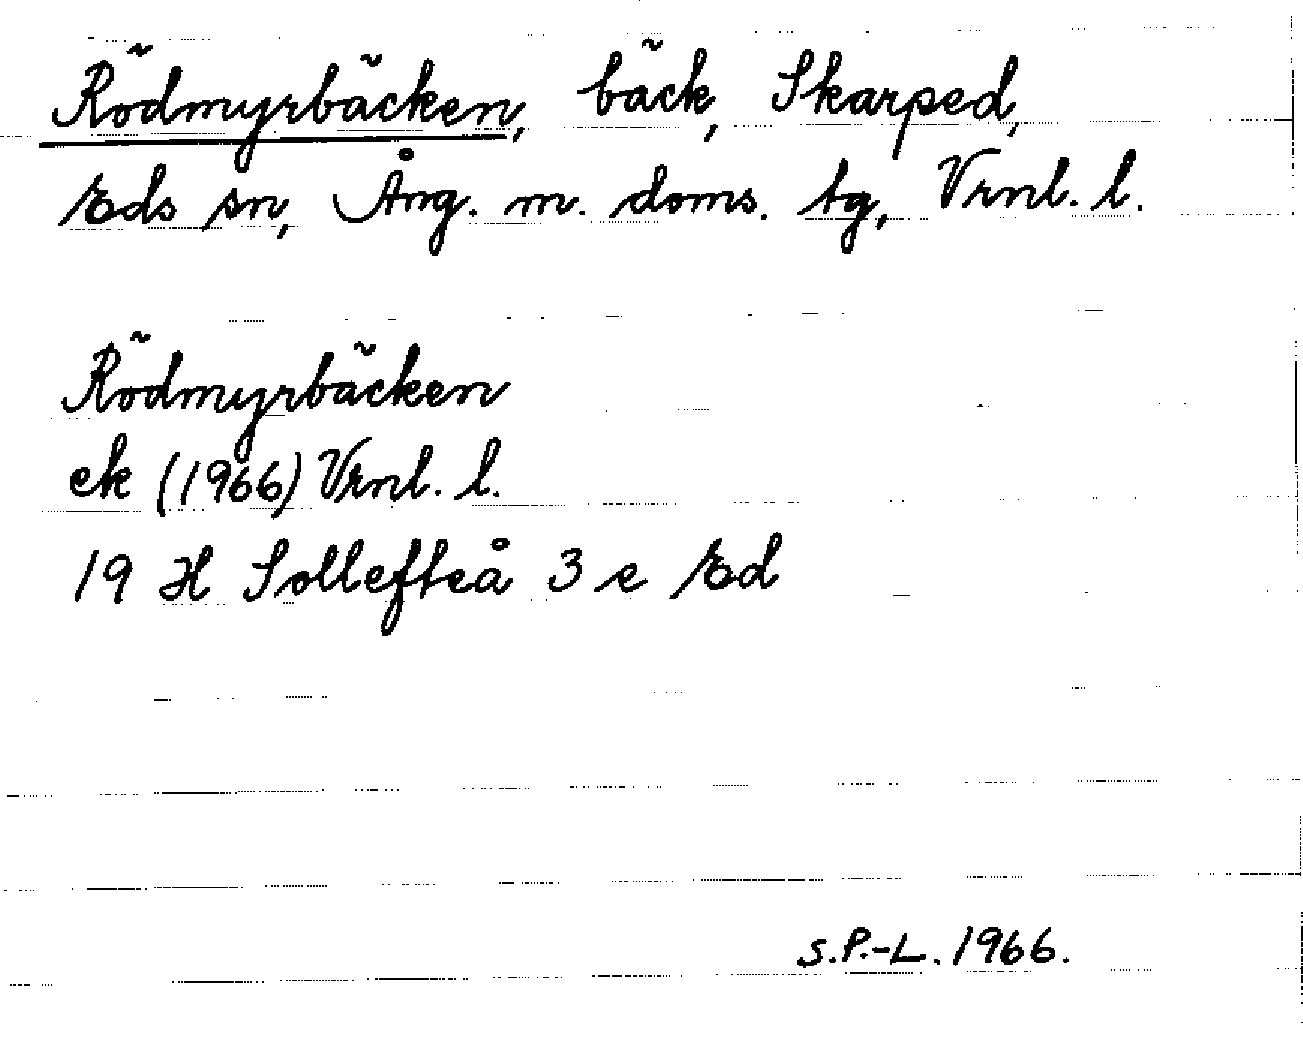 Rödmyrbäcken, bäck, Skarped,
Eds sn, Ång. m. doms. tg, Vrnl. l.
Rödmyrbäcken
ek (1966) Vrnl. l.
19 H Sollefteå 3 e Ed
s.P.-L. 1966.